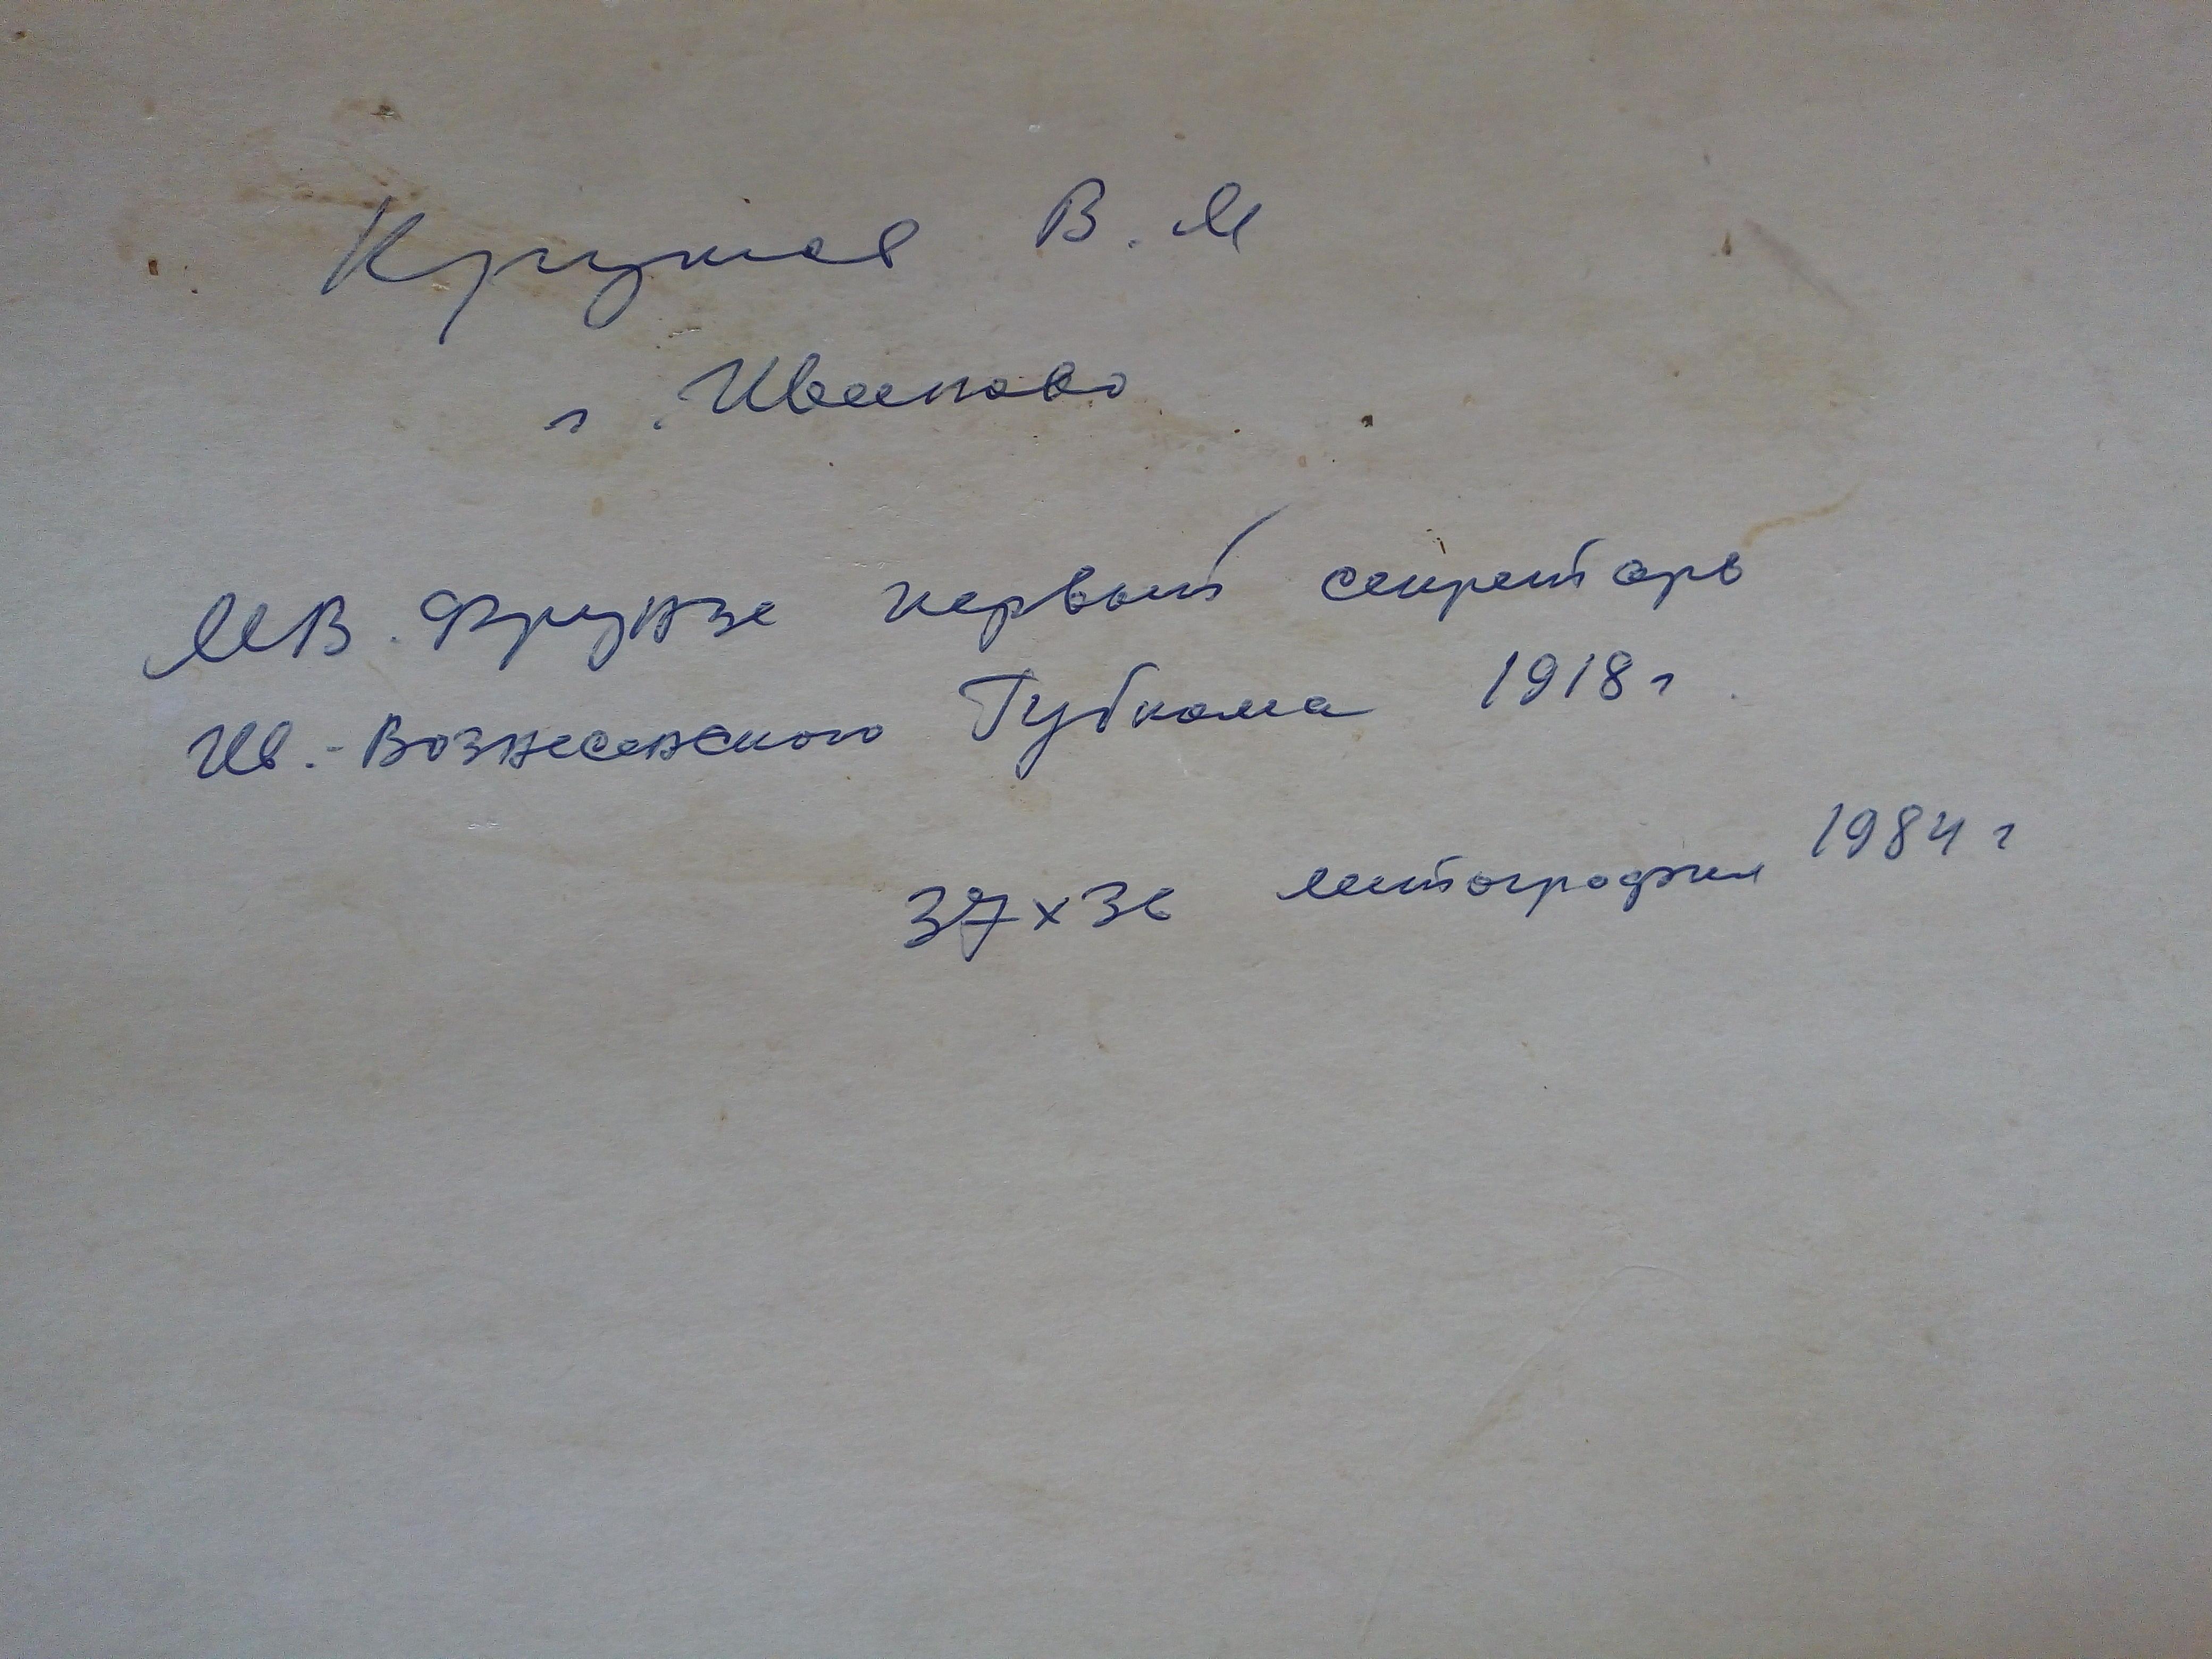 В. М
г. Иваново
М В. Фрунзе первый секретарь
Ив.-Вознесенского Губкома 1918 г
37 х 36 литография 1984 г